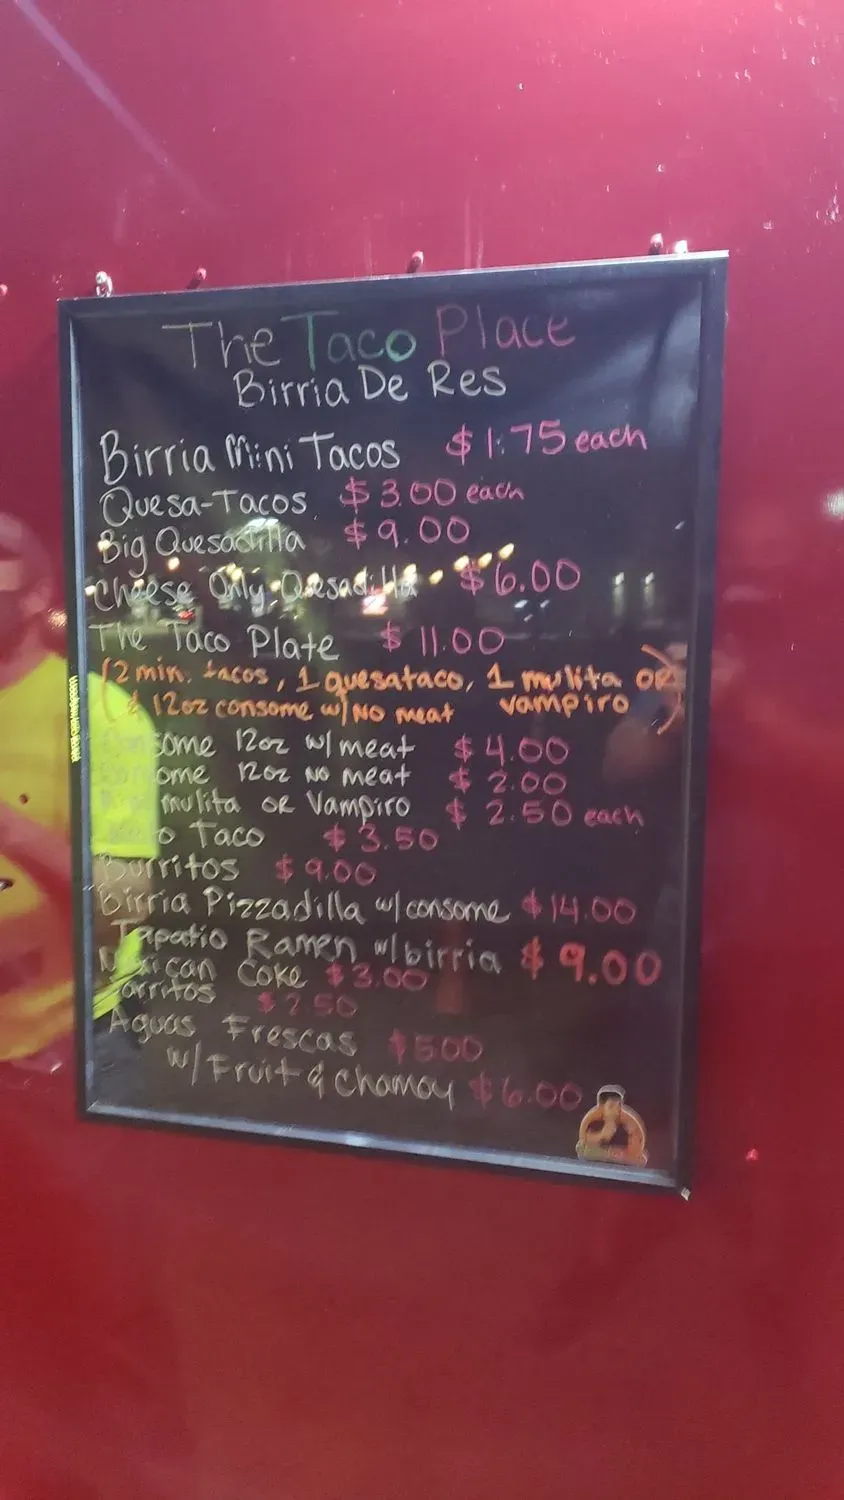 The Taco Place
Birria De Res
Birria Mini Tacos $1.75 each
Quesa-Tacos $3.00 each
Big Quesadilla $9.00
Cheese Only Quesadilla $6.00
The Taco Plate $11.00
(2 min. tacos, 1 quesataco, 1 mulita OR
& 12oz consome w/ NO meat vampiro)
Consome 12oz w/ meat $4.00
Consome 12oz NO meat $2.00
mulita OR Vampiro $2.50 each
Taco $3.50
Burritos $9.00
Birria Pizzadilla w/ consome $14.00
Tapatio Ramen w/ birria $9.00
Mexican Coke $3.00
Jarritos $2.50
Aguas Frescas $5.00
w/ Fruit & Chamoy $6.00